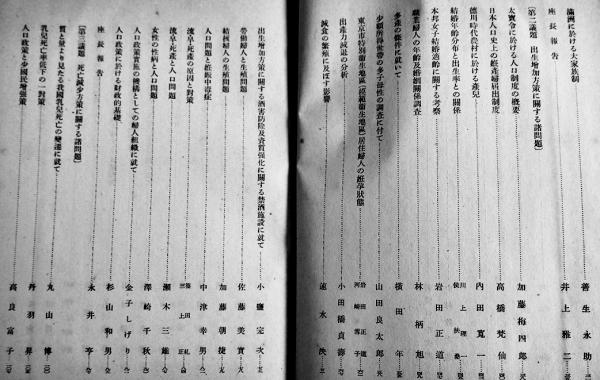 滿洲に於ける大家族制 善生永助
座長報告 井上雅二
〔第二議題 出生增加方策に關する諸問題〕
太寶令に於ける人口制度の概要 加藤梅四郎
日本人口史上の姙產婦屆出制度 高橋梵仙
德川時代農村に於ける產兒 內田寬一
結婚年齡分布と出生率との關係 川上理一
本邦女子結婚適齡に關する考察 岩田正道
職業婦人の年齡及婚姻關係調査 林柄旭
多產の條件に就いて 橫田年
少額所得世帶の多子母性の調査に付て 山田良太郎
東京市特別衛生地區（模範衛生地區）居住婦人の姙孕狀態 岩田正道 河崎雪子
出產力減退の分析 小田橋貞壽
減食の繁殖に及ぼす影響 速水泱
出生增加方策に關する酒害防除及資質强化に關する禁酒施設に就て 小鹽完次
勞働婦人と生殖問題 佐藤美實
結核婦人の生殖問題 加藤朝捷
人口問題と姙娠中毒症 中津幸男
流早死產の原因と對策 篠田糺 三上正
流早死產と人口問題 瀨木三雄
女性の性病と人口問題 澤崎千秋
人口政策實施の機構としての婦人組織に就て 金子しげり
人口政策に於ける財政的基礎 杉山和男
座長報告 永井亨
〔第三議題 死亡減少方策に關する諸問題〕
質と量より見たる我國乳兒死亡の變遷に就て 丸山博
乳兒死亡率低下の一對策 丹羽昇
人口政策と少國民增强策 高良富子